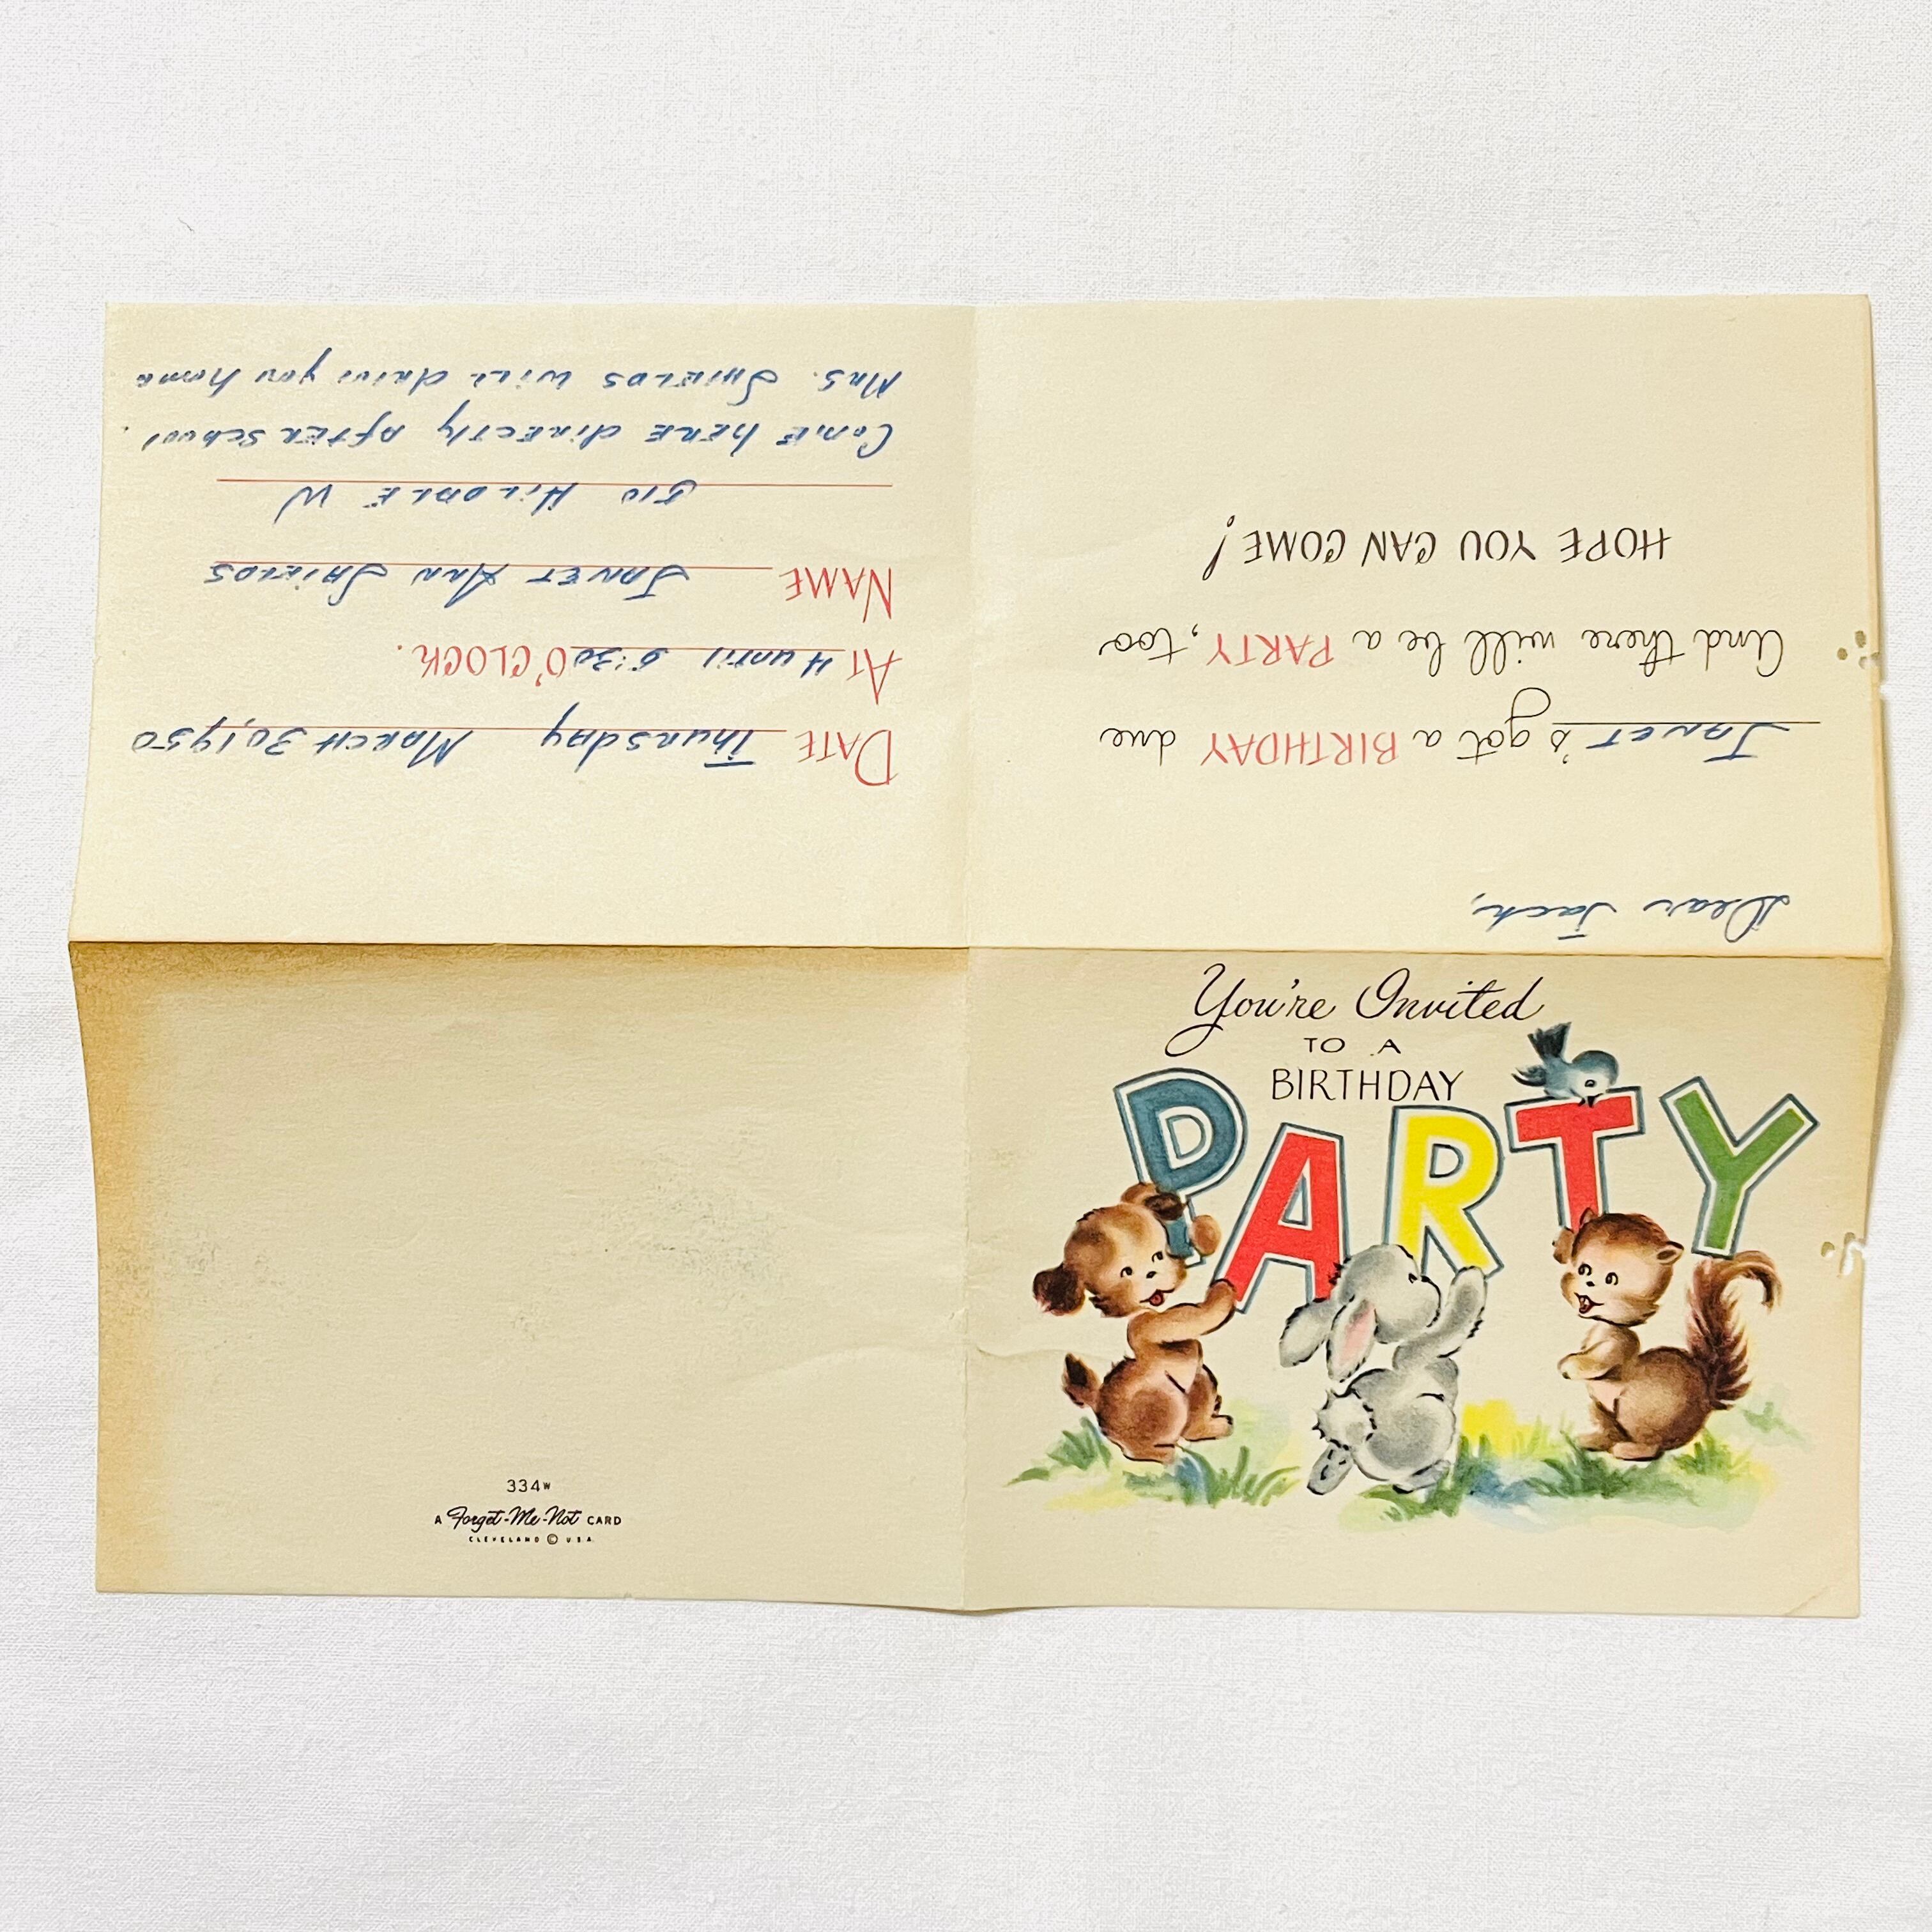 You're Invited
TO A
BIRTHDAY
PARTY
334W
A Forget-Me-Not CARD
CLEVELAND © U.S.A.
Dear Jack,
Janet's got a BIRTHDAY due
And there will be a PARTY, too
HOPE YOU CAN COME!
DATE Thursday March 30, 1950
AT 4 until 5:30 O'CLOCK.
NAME Janet Ann Shields
510 Hildale W
Come here directly after school.
Mrs. Shields will drive you home